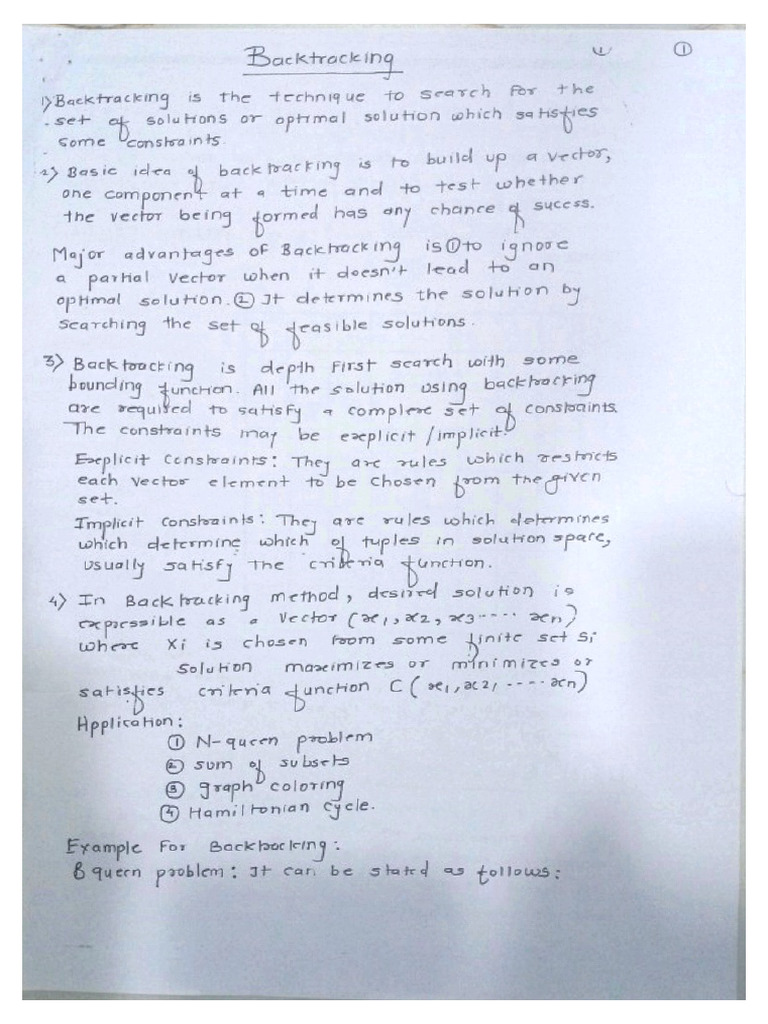 Backtracking ①
1) Backtracking is the technique to search for the
set of solutions or optimal solution which satisfies
some constraints.
2) Basic idea of backtracking is to build up a vector,
one component at a time and to test whether
the vector being formed has any chance of sucess.
Major advantages of Backtracking is ① to ignore
a partial vector when it doesn't lead to an
optimal solution. ② It determines the solution by
searching the set of feasible solutions.
3) Backtracking is depth first search with some
bounding function. All the solution using backtracking
are required to satisfy a complex set of constraints.
The constraints may be explicit / implicit.
Explicit Constraints: They are rules which restricts
each vector element to be chosen from the given
set.
Implicit constraints: They are rules which determines
which determine which of tuples in solution space,
usually satisfy the criteria function.
4) In Backtracking method, desired solution is
expressible as a vector (x1, x2, x3 ---- xn)
where Xi is chosen from some finite set Si
solution maximizes or minimizes or
satisfies criteria function C (x1, x2, ---- xn)
Application:
① N-queen problem
② sum of subsets
③ graph coloring
④ Hamiltonian cycle.
Example For Backtracking:
8 queen problem: It can be stated as follows: